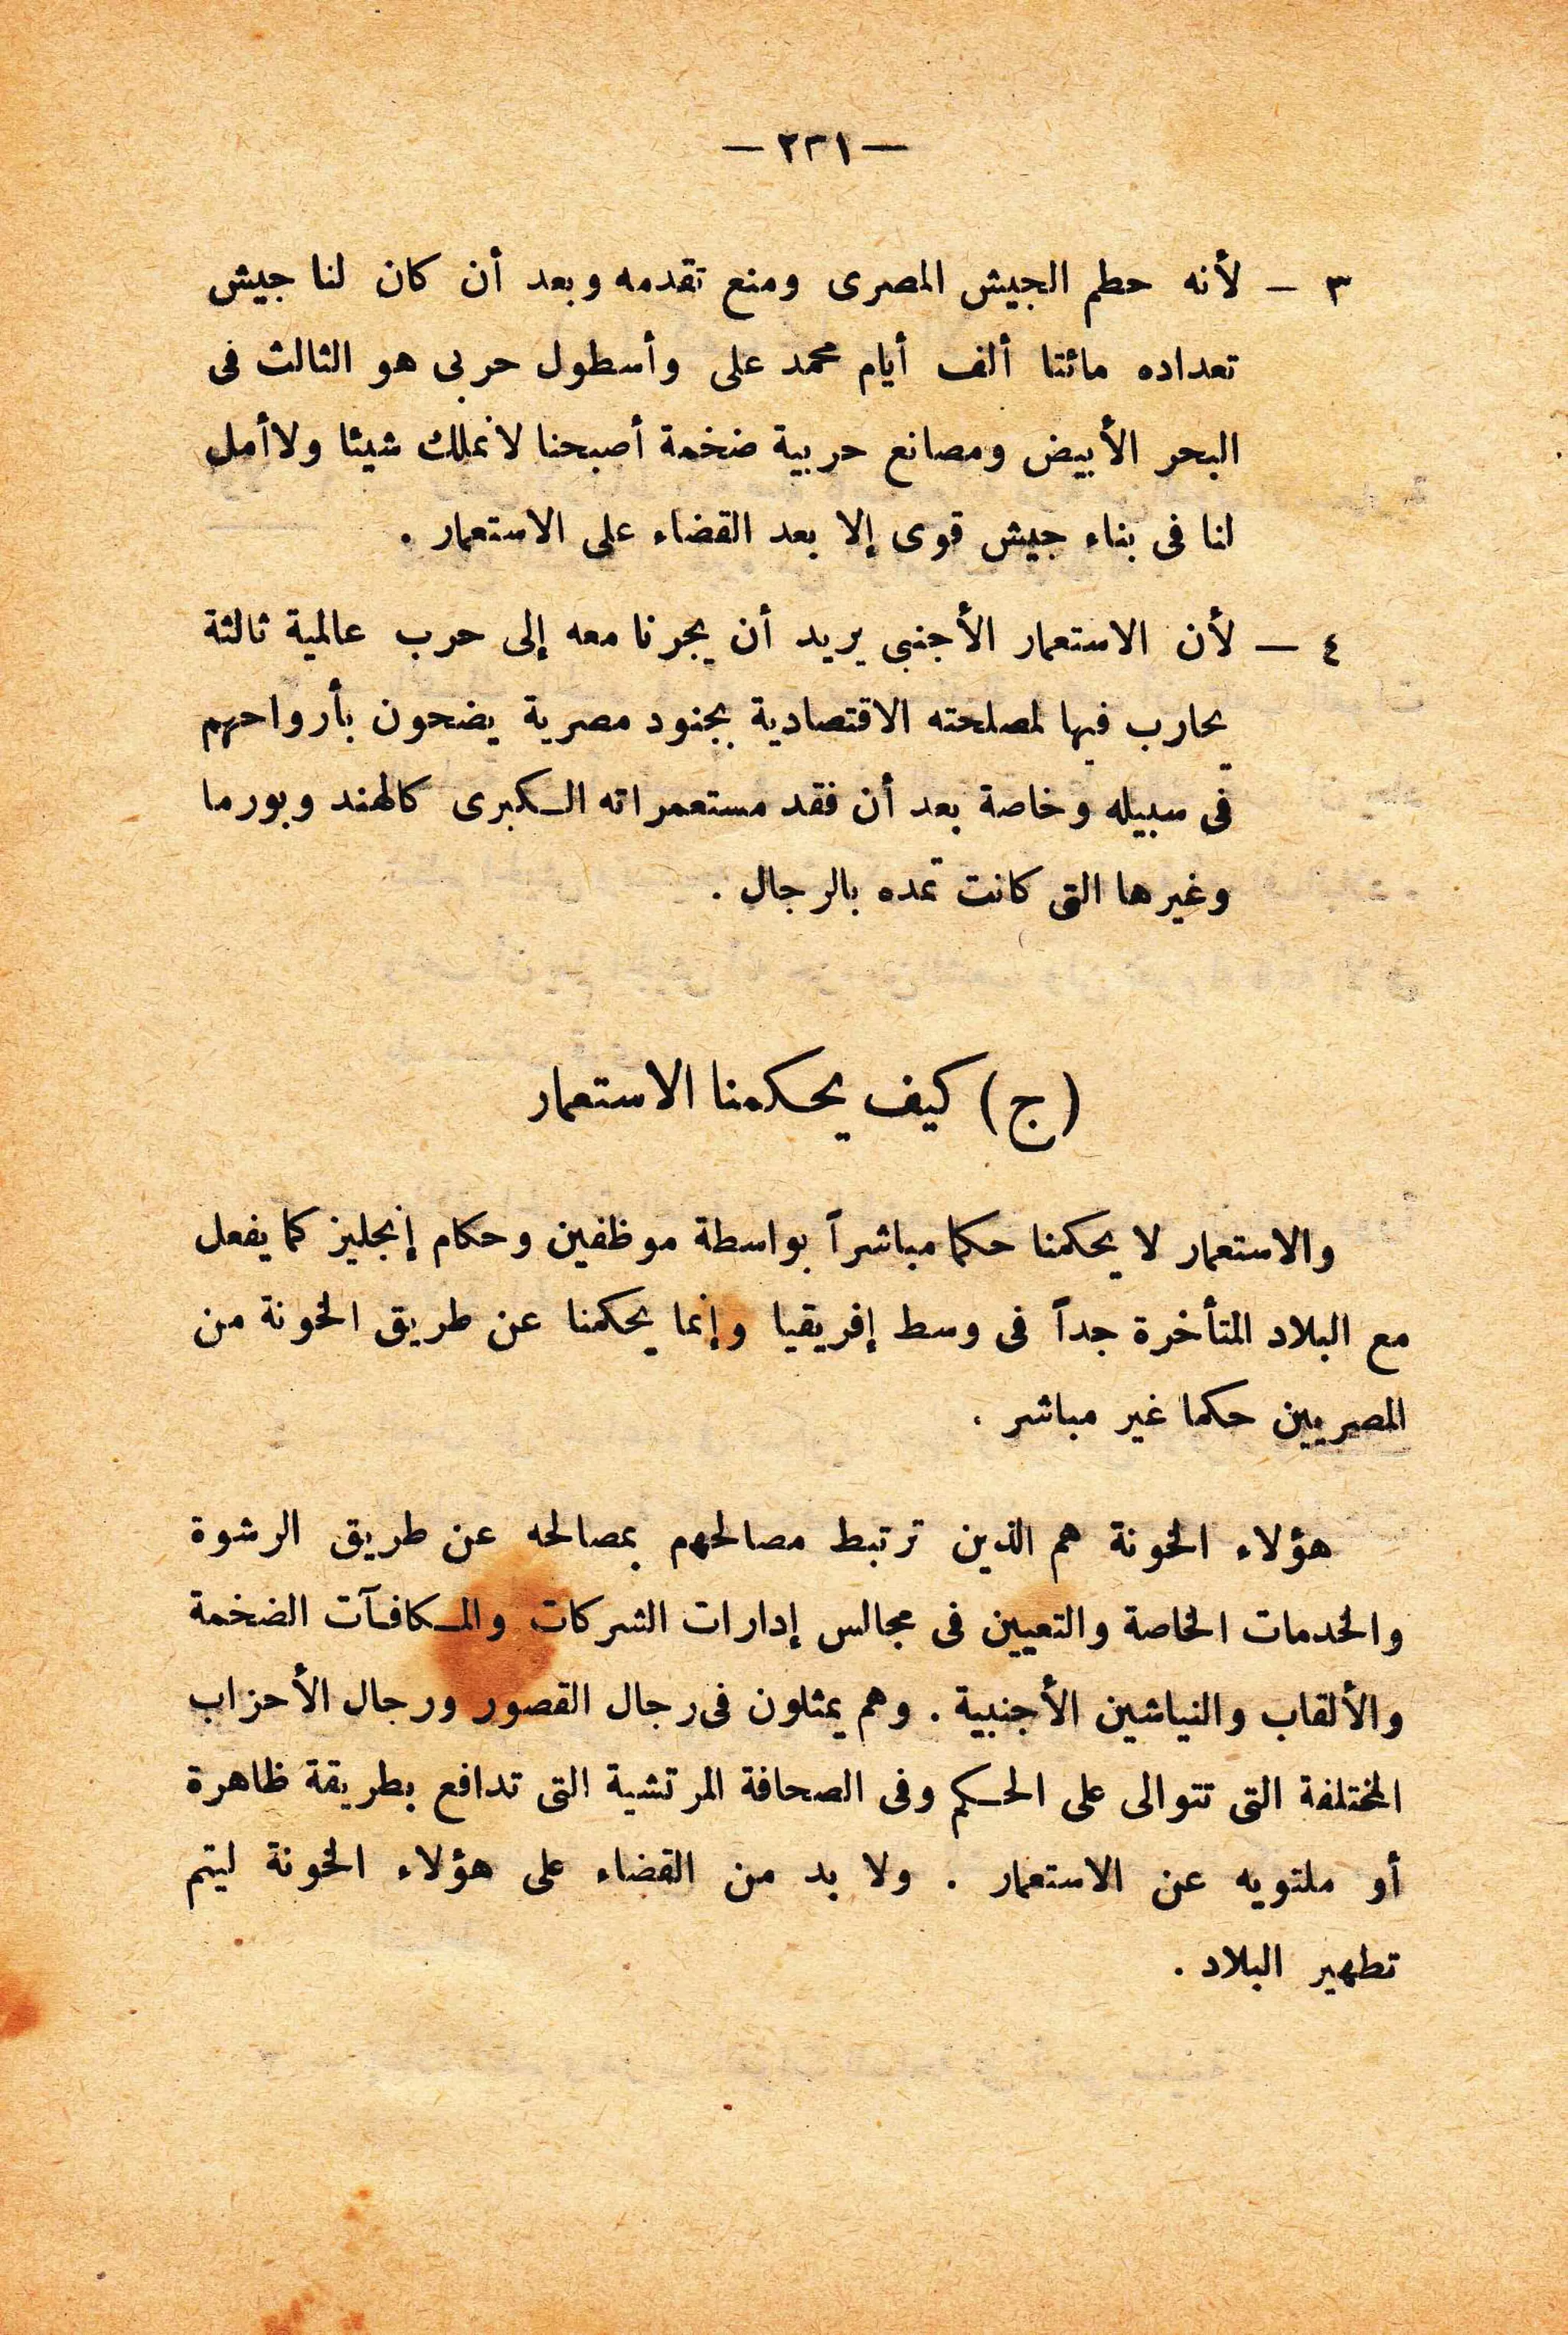 — ٢٣١ —
٣ — لأنه حطم الجيش المصرى ومنع تقدمه وبعد أن كان لنا جيش
تعداده مائتا ألف أيام محمد على وأسطول حربى هو الثالث فى
البحر الأبيض ومصانع حربية ضخمة أصبحنا لا نملك شيئا ولا أمل
لنا فى بناء جيش قوى إلا بعد القضاء على الاستعمار .
٤ — لأن الاستعمار الأجنبى يريد أن يجرنا معه إلى حرب عالمية ثالثة
يحارب فيها لمصلحته الاقتصادية بجنود مصرية يضحون بأرواحهم
فى سبيله وخاصة بعد أن فقد مستعمراته الكبرى كالهند وبورما
وغيرها التى كانت تمده بالرجال .
(ج) كيف يحكمنا الاستعمار
والاستعمار لا يحكمنا حكما مباشراً بواسطة موظفين وحكام إنجليز كما يفعل
مع البلاد المتأخرة جداً فى وسط إفريقيا وإنما يحكمنا عن طريق الخونة من
المصريين حكما غير مباشر .
هؤلاء الخونة هم الذين ترتبط مصالحهم بمصالحه عن طريق الرشوة
والخدمات الخاصة والتعيين فى مجالس إدارات الشركات والمكافآت الضخمة
والألقاب والنياشين الأجنبية . وهم يمثلون فى رجال القصور ورجال الأحزاب
المختلفة التى تتوالى على الحكم وفى الصحافة المرتشية التى تدافع بطريقة ظاهرة
أو ملتويه عن الاستعمار . ولا بد من القضاء على هؤلاء الخونة ليتم
تطهير البلاد .